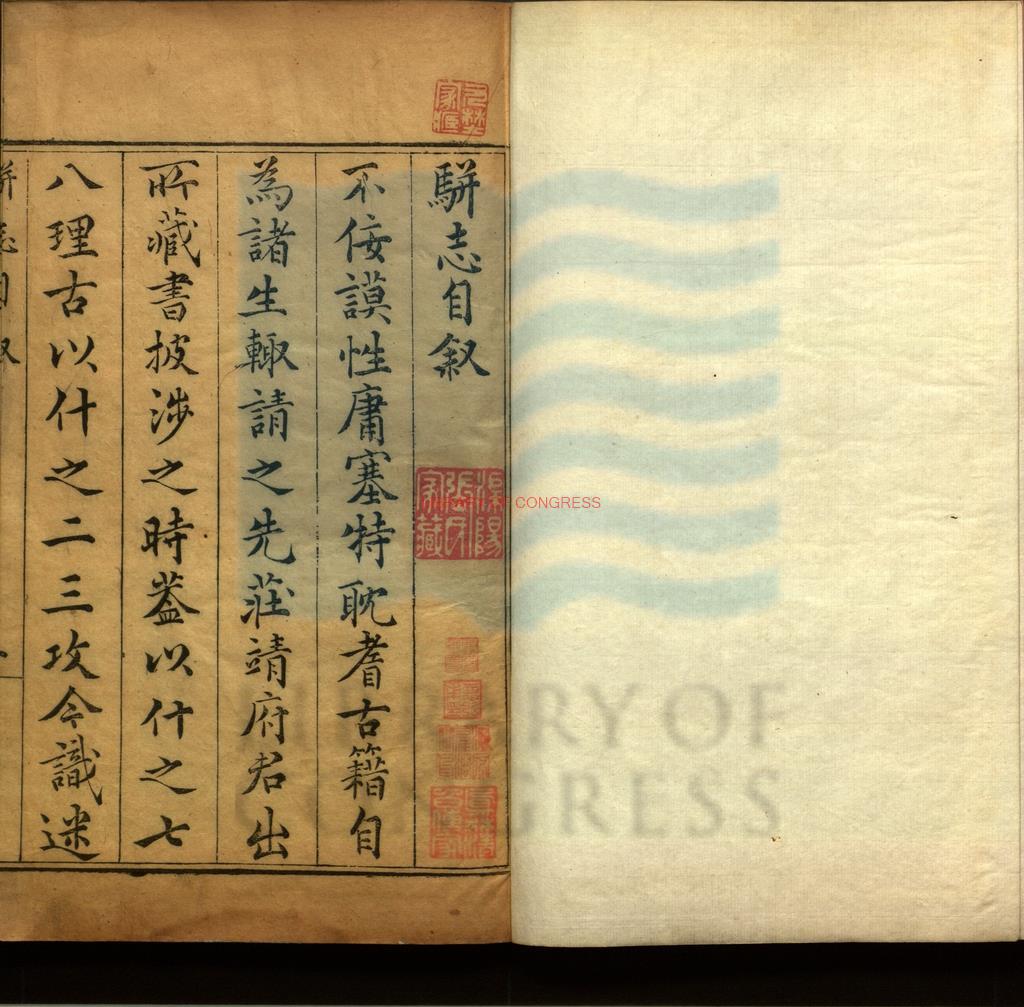 駢志自叙
不佞謨性庸塞特耽耆古籍自
為諸生輙請之先莊靖府君出
所藏書披涉之時葢以什之七
八理古以什之二三攻今識迷
駢志自叙
溧陽張氏家藏
LIBRARY OF CONGRESS
LIBRARY OF
CONGRESS